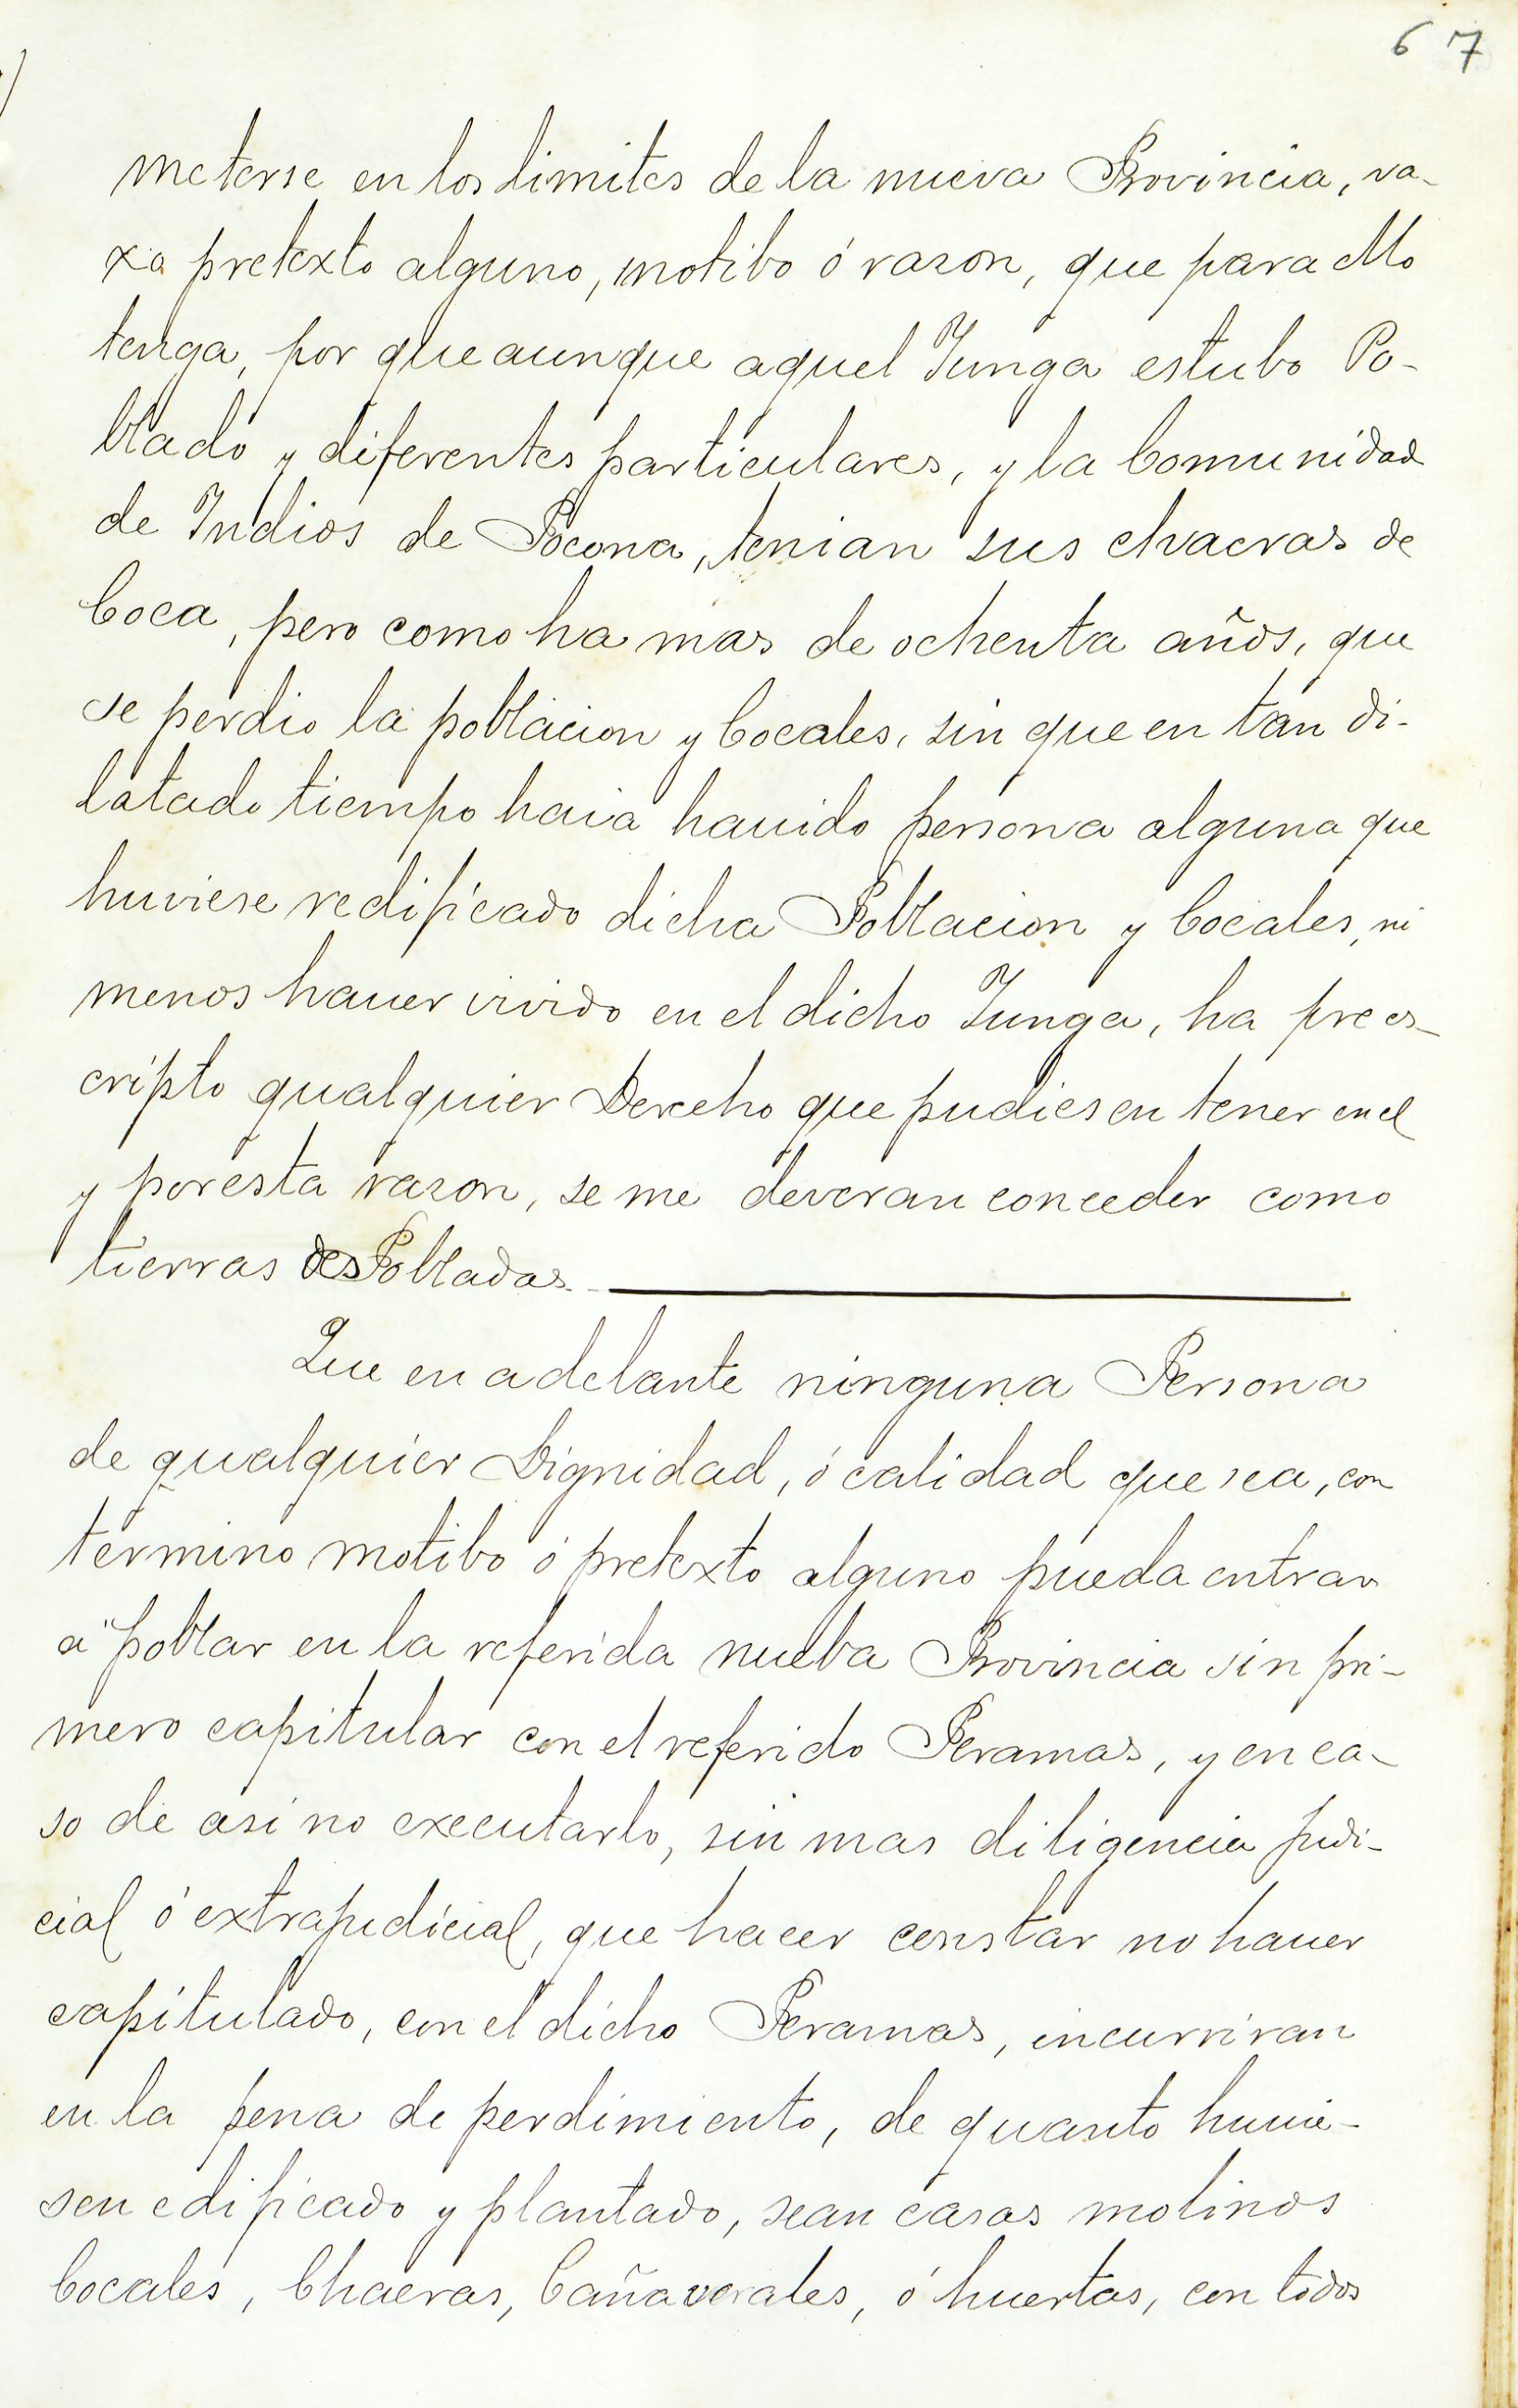 67
meterse en los limites de la nueva Provincia, va-
xo pretexto alguno, motibo ó razon, que para ello
tenga, por que aunque aquel Yunga estubo Po-
blado y diferentes particulares, y la Comunidad
de Indios de Pocona, tenian sus chacras de
Coca, pero como ha mas de ochenta años, que
se perdio la poblacion y Cocales, sin que en tan di-
latado tiempo haia hauido persona alguna que
huviese redificado dicha Poblacion y Cocales, ni
menos hauer vivido en el dicho Yunga, ha prees-
cripto qualquier Derecho que pudiesen tener en el
y por esta razon, se me deveran conceder como
tierras desPobladas
Que en adelante ninguna Persona
de qualquier Dignidad, ó calidad que sea, con
termino motibo ó pretexto alguno pueda entrar
a poblar en la referida nueba Provincia sin pri-
mero capitular con el referido Peramas, y en ca-
so de asi no executarlo, sin mas diligencia judi-
cial ó extrajudicial, que hacer constar no hauer
capitulado, con el dicho Peramas, incurriran
en la pena de perdimiento, de quanto huuie-
sen edificado y plantado, sean casas molinos
Cocales, Chacras, Cañaverales, ó huertas, con todos